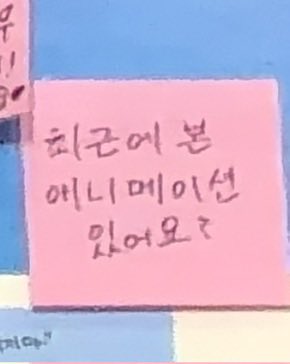 우
!!
최근에 본
애니메이션
있어요?
지마"